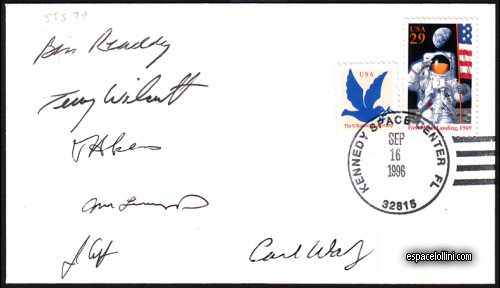 STS 79
Bill Readdy
Terry Wilcutt
T Akers
J Apt
Carl Walz
USA
USA
29
First Moon Landing, 1969
KENNEDY SPACE CENTER FL
SEP
16
1996
32815
espacelollini.com